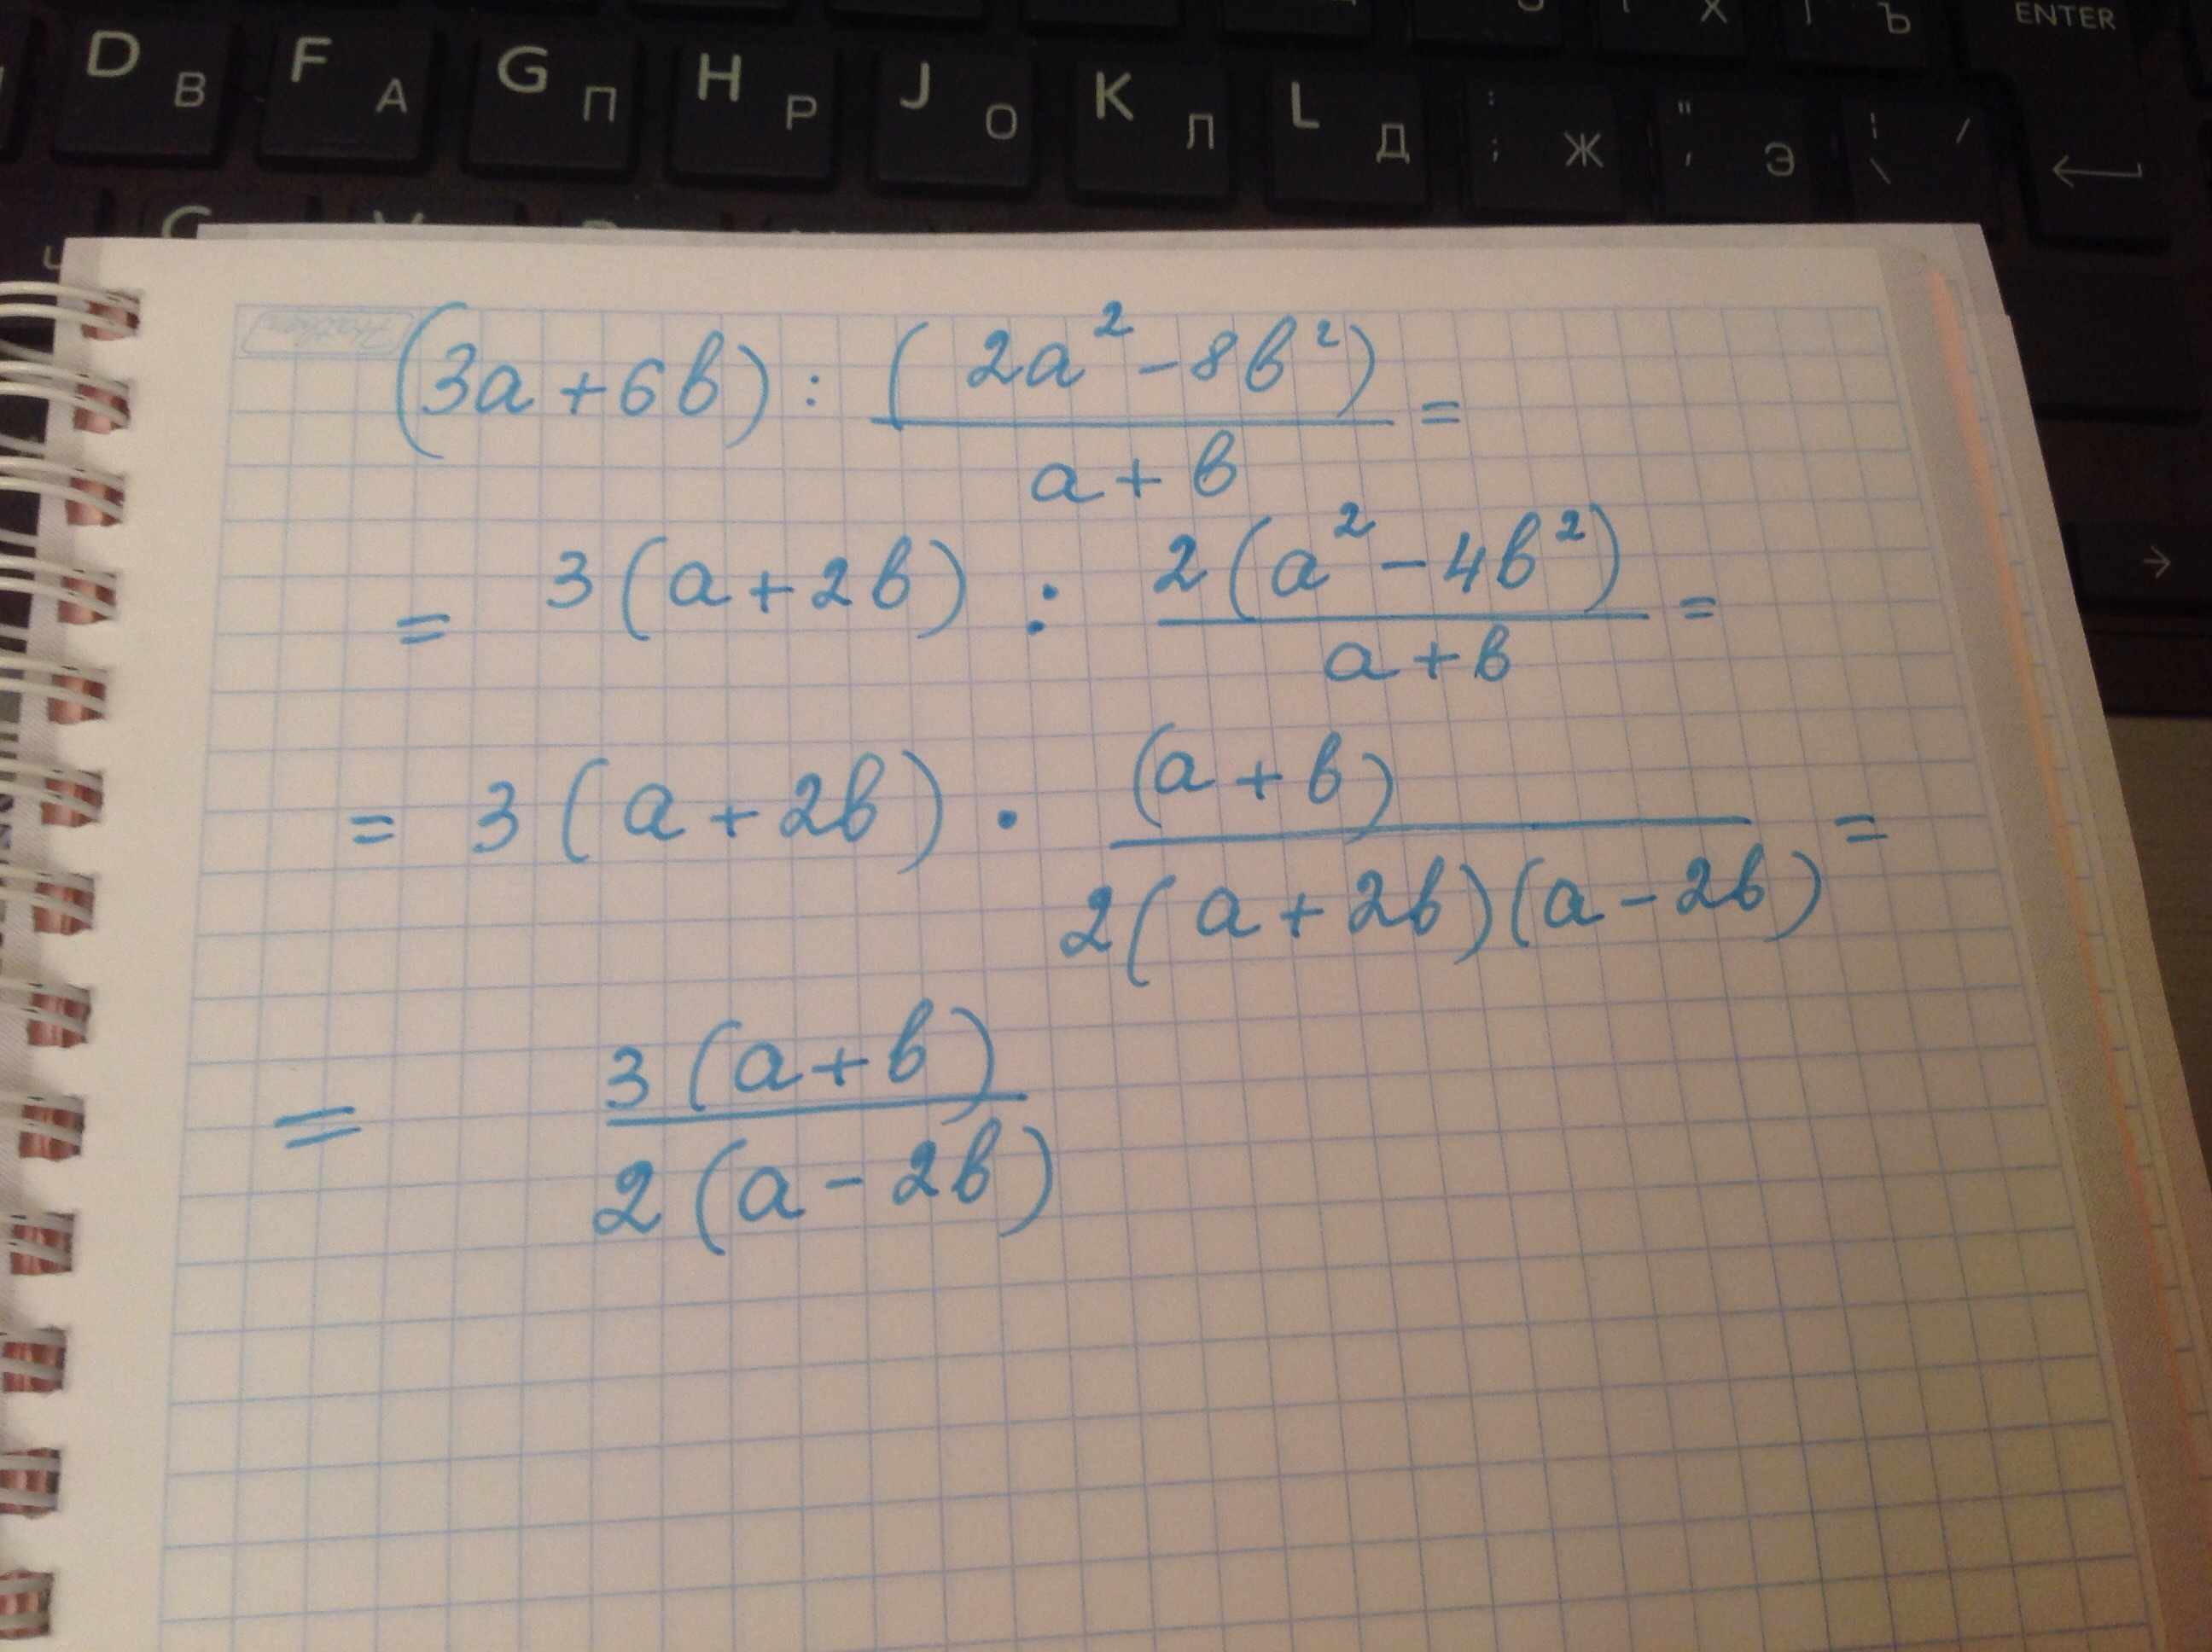 X Ъ ENTER
D В F А G П H Р J О K Л L Д : ; Ж " ' Э | \ /
(3a + 6b) : (2a² - 8b²) / a + b =
= 3(a + 2b) : 2(a² - 4b²) / a + b =
= 3(a + 2b) · (a + b) / 2(a + 2b)(a - 2b) =
= 3(a + b) / 2(a - 2b)